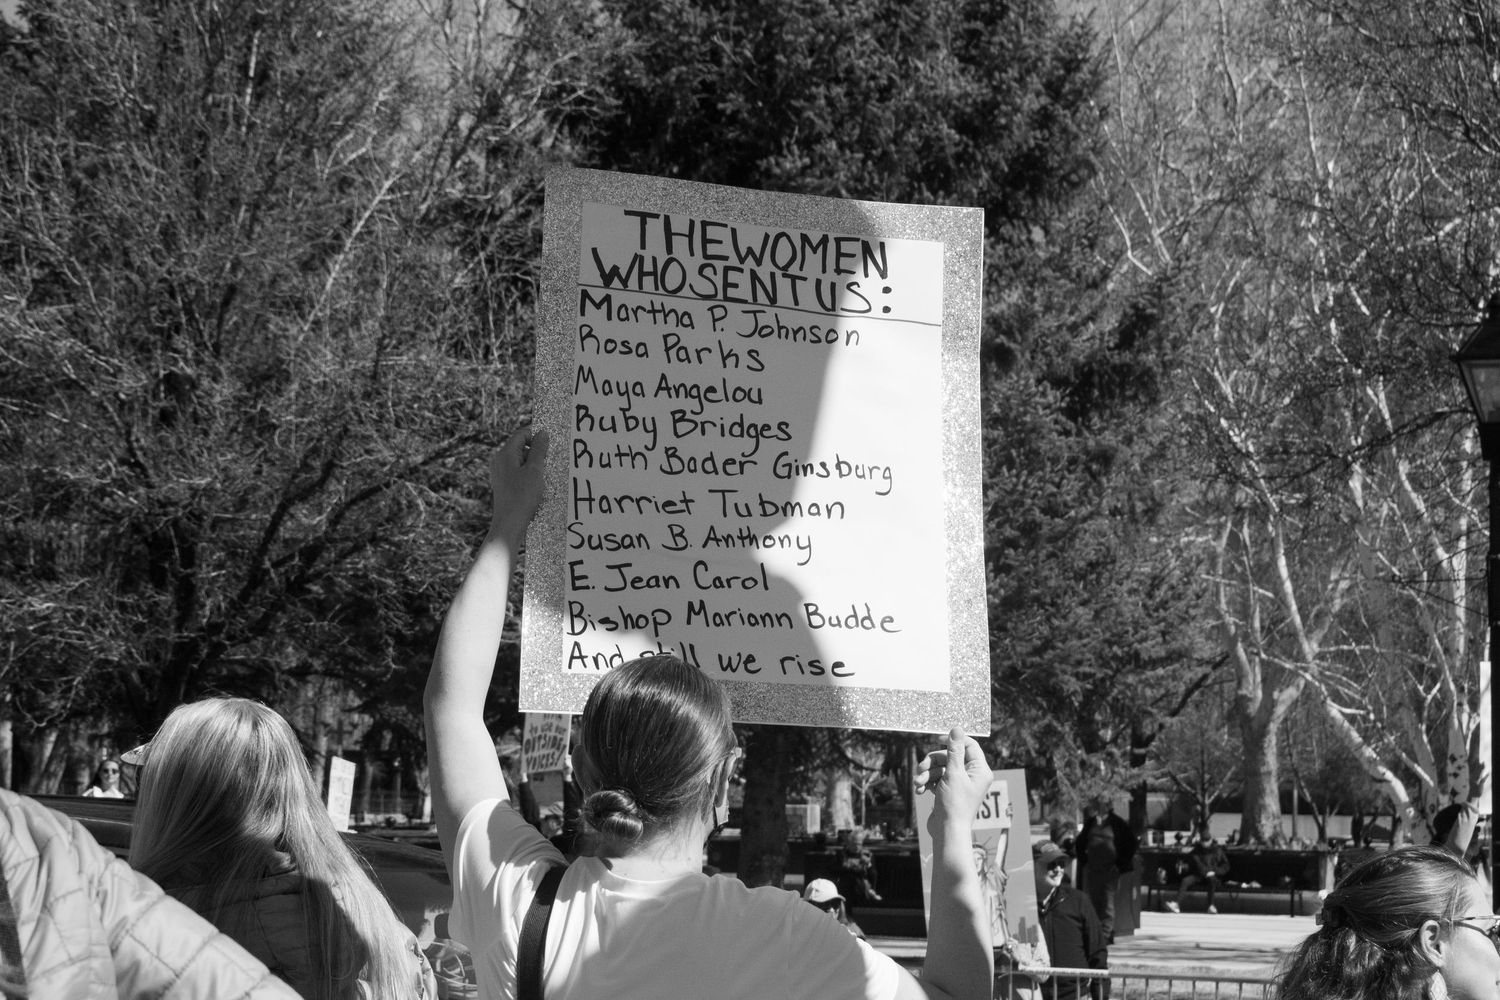 THE WOMEN
WHO SENT US:
Martha P. Johnson
Rosa Parks
Maya Angelou
Ruby Bridges
Ruth Bader Ginsburg
Harriet Tubman
Susan B. Anthony
E. Jean Carol
Bishop Mariann Budde
And still we rise
OUTSIDE
VOICES!